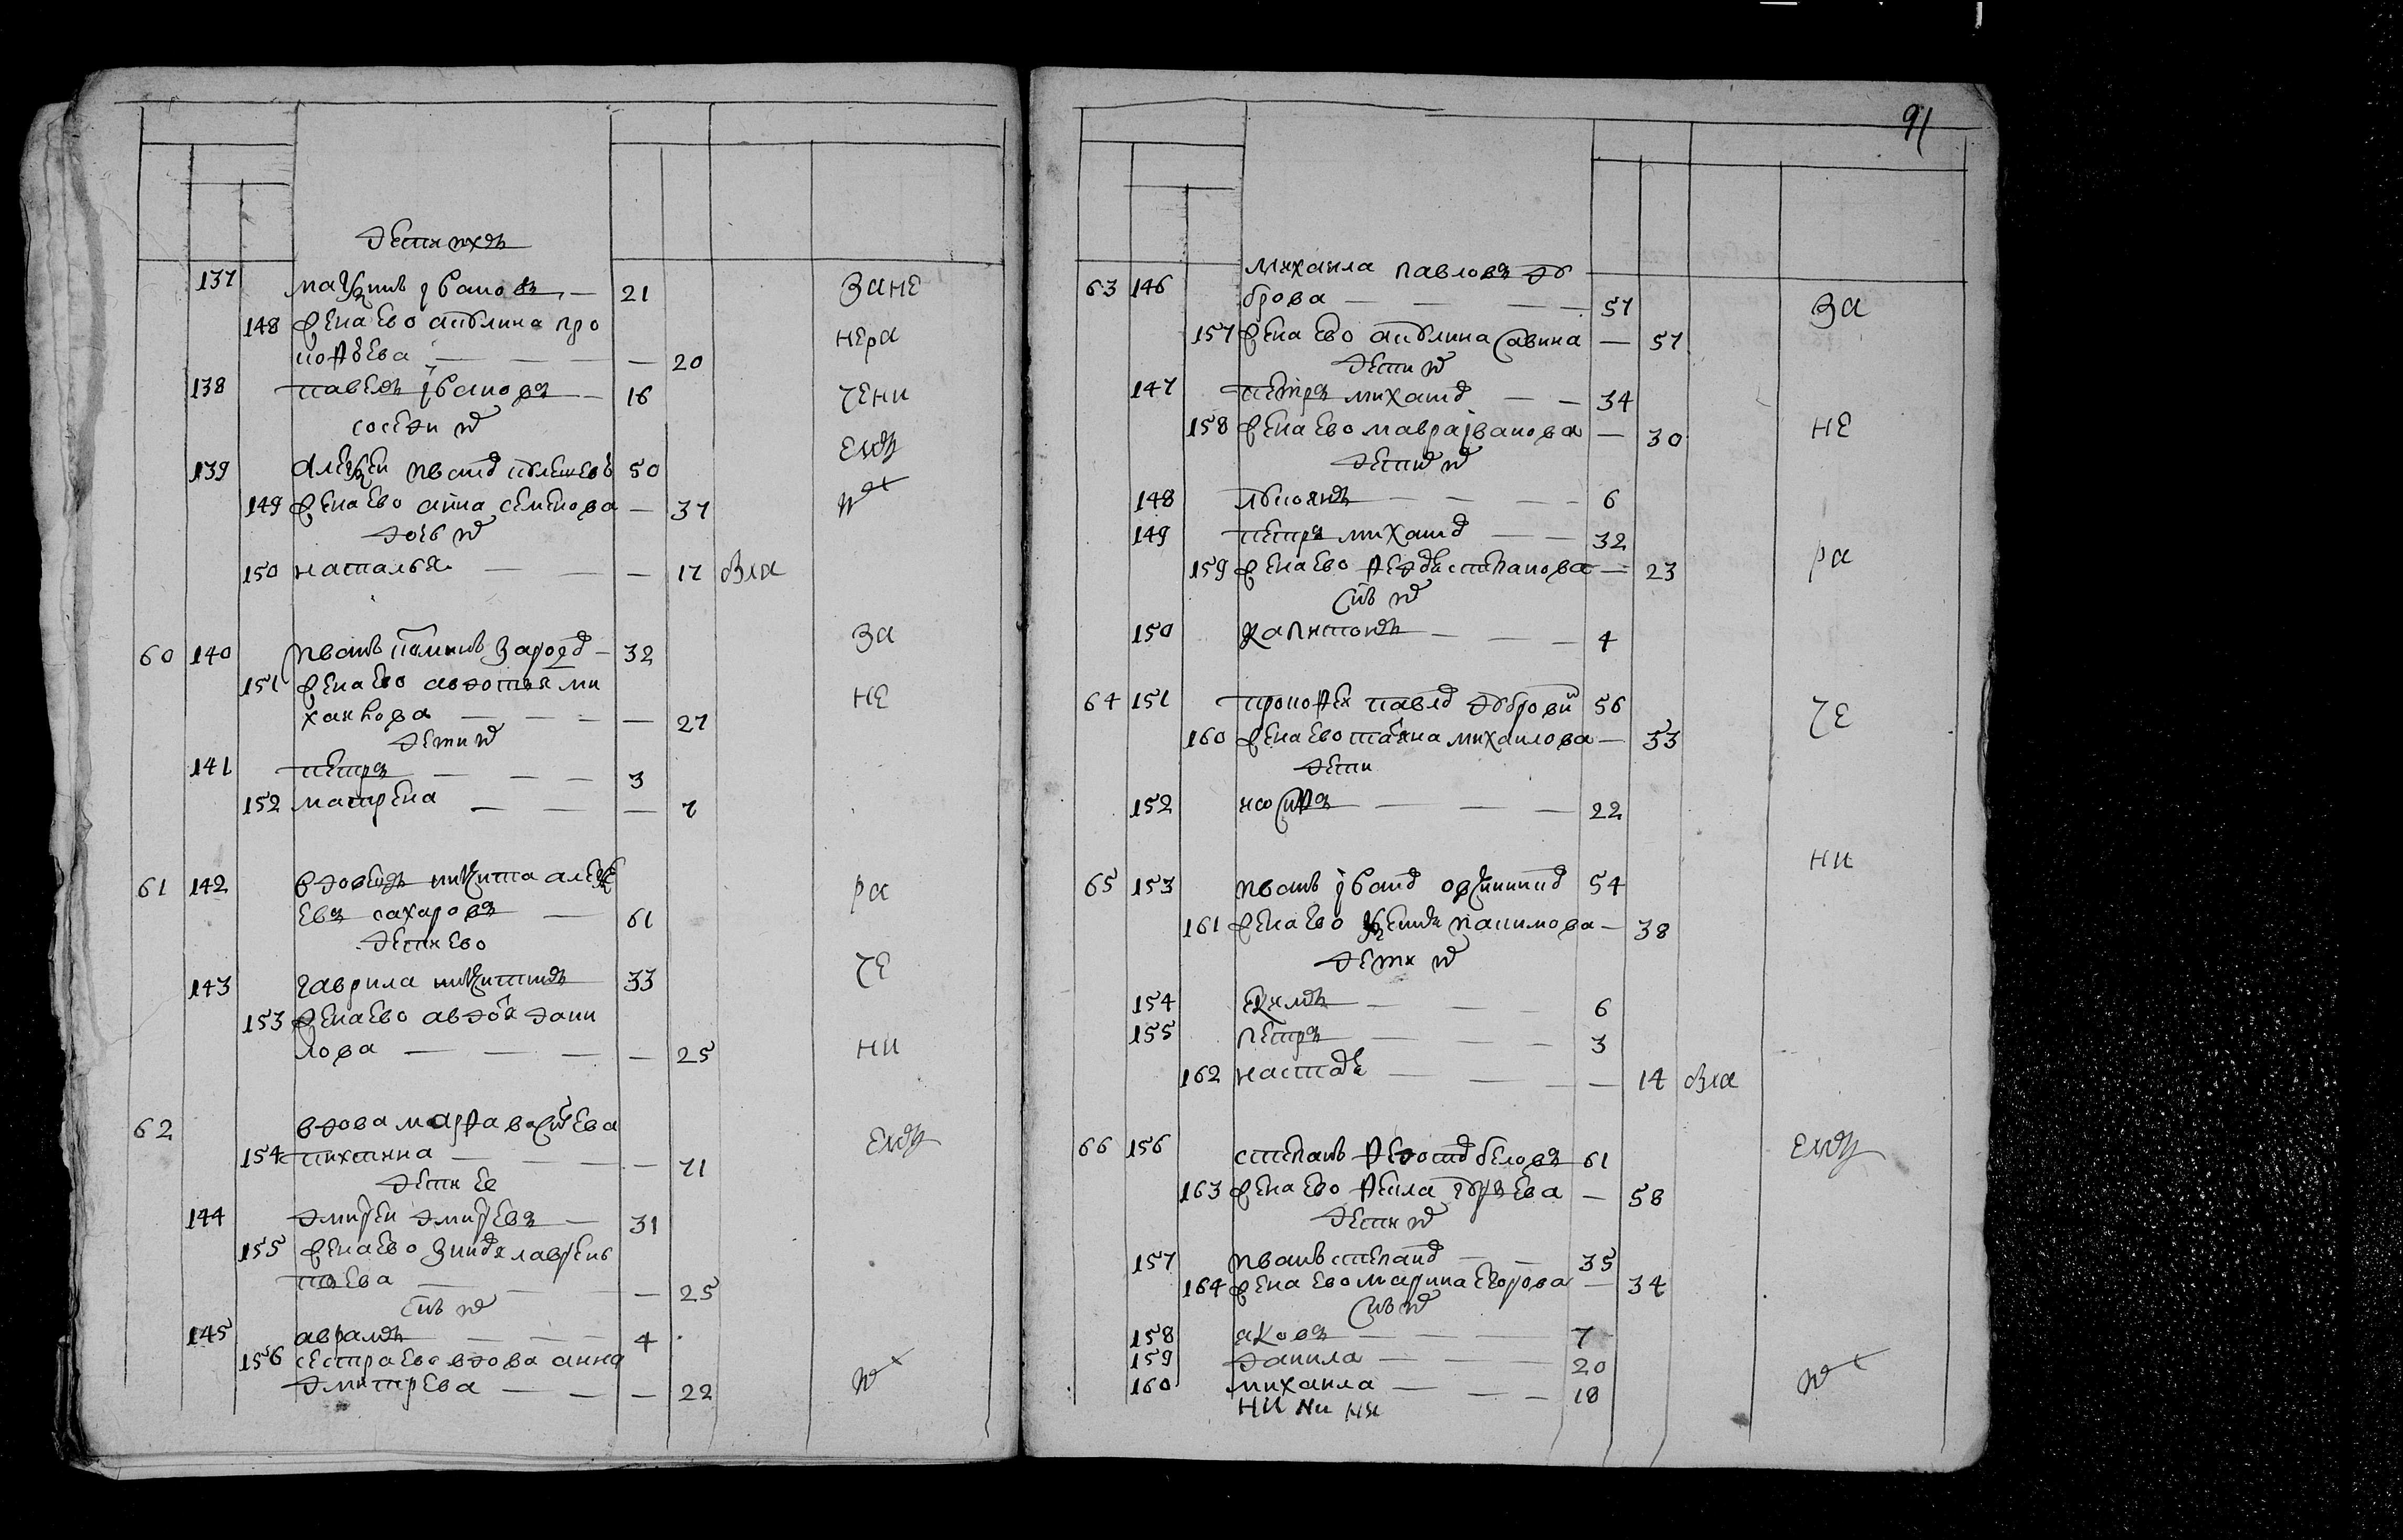 дети ихъ
137 Маѯимъ Iвановъ — 21 ЗАНЕ
148 жена ево акулина про
кофьева — — — — 20 НЕРА
138 павелъ Iвановъ — 16 ЧЕНИ
соседи их
139 Алеѯеи Иванов 50 ЕМЪ
149 жена ево анна семенова — 37
дочь их
150 наталья — — — 17 Вла
60 140 Иванъ — 32 ЗА
151 жена ево авдотья ми
хаилова — — — — 27 НЕ
дети их
141 петръ — — — 3
152 матрена — — — 7
61 142 вдовецъ никита алеѯе
евъ сахаровъ — 61 РА
дети ево
143 гаврила никитинъ 33 ЧЕ
153 жена ево авдотья дани
лова — — — — 25 НИ
62 вдова марфа васильева
154 — — — — 71 ЕМЪ
дети ее
144 дмитреи дмитревъ — 31
155 жена ево лаврень
тьева — — — 25
сынъ их
145 аврамъ — — — 4
156 сестра ево вдова анна
дмитрева — — — 22
91
63 146 Михаила павловъ ду
брова — — — — 57 ЗА
157 жена ево акулина савина — 57
дети их
147 петръ михаилов — — 34
158 жена ево мавра Iванова — 30 НЕ
дети их
148 лукоянъ — — — 6
149 петръ михаилов — — 32
159 жена ево федосья степанова — 23 РА
сынъ их
150 капитонъ — — — 4
64 151 прокофеи павлов дубровин 56 ЧЕ
160 жена ево татьяна михаилова — 53
дети
152 иосифъ — — — 22
НИ
65 153 Иванъ Iванов овчинников 54
161 жена ево акимова — 38
дети их
154 екимъ — — — 6
155 Петръ — — — 3
162 настасья — — — — 14 Вла
66 156 степанъ федотов беловъ 61 ЕМЪ
163 жена ево фекла — 58
дети их
157 Иванъ степанов — — 35
164 жена ево марина егорова — 34
сынъ их
158 яковъ — — — 7
159 данила — — — 20
160 михаила — — — 18
НИ Ни ни